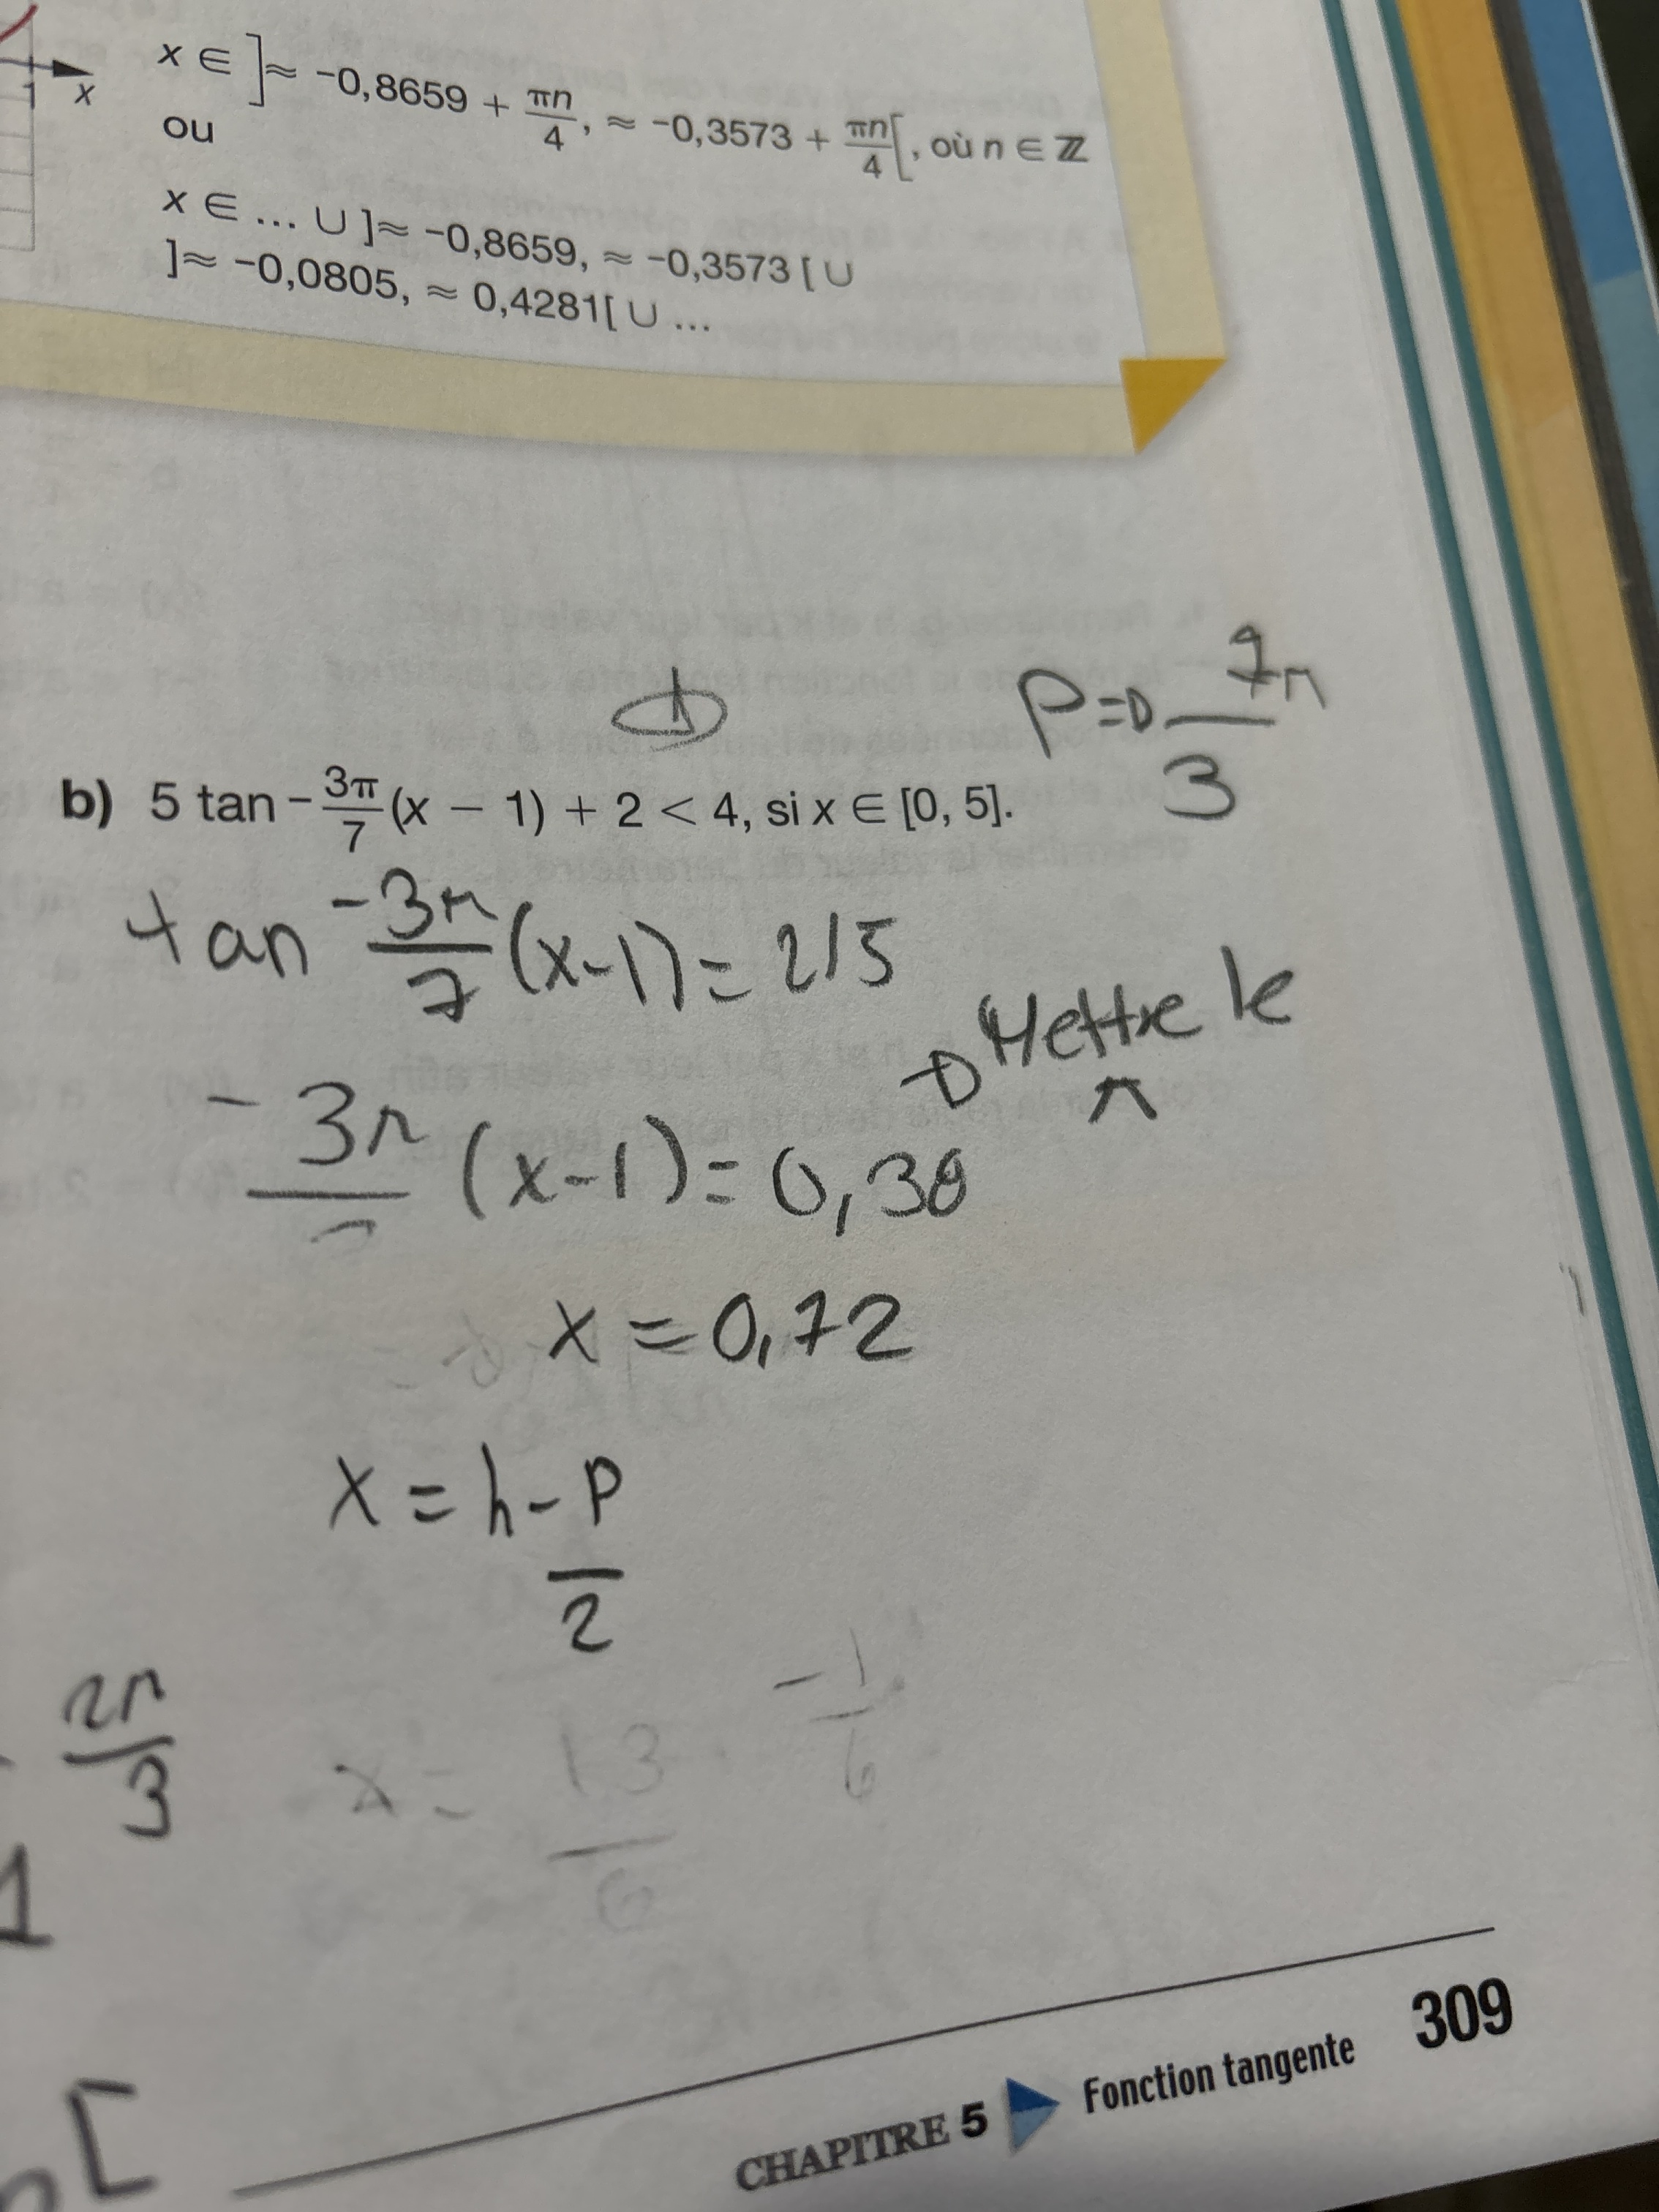 x
1
x ∈ ]≈ -0,8659 + πn/4, ≈ -0,3573 + πn/4[, où n ∈ ℤ
ou
x ∈ ... ∪ ]≈ -0,8659, ≈ -0,3573[ ∪
]≈ -0,0805, ≈ 0,4281[ ∪ ...
P= 7π/3
b) 5 tan -3π/7 (x - 1) + 2 < 4, si x ∈ [0, 5].
tan -3π/7 (x-1) = 2/5
Mettre le
π
-3π/7 (x-1) = 0,38
x = 0,72
x = h - P/2
2π/3
-1/6
x = 13/6
1
[
309
CHAPITRE 5 Fonction tangente